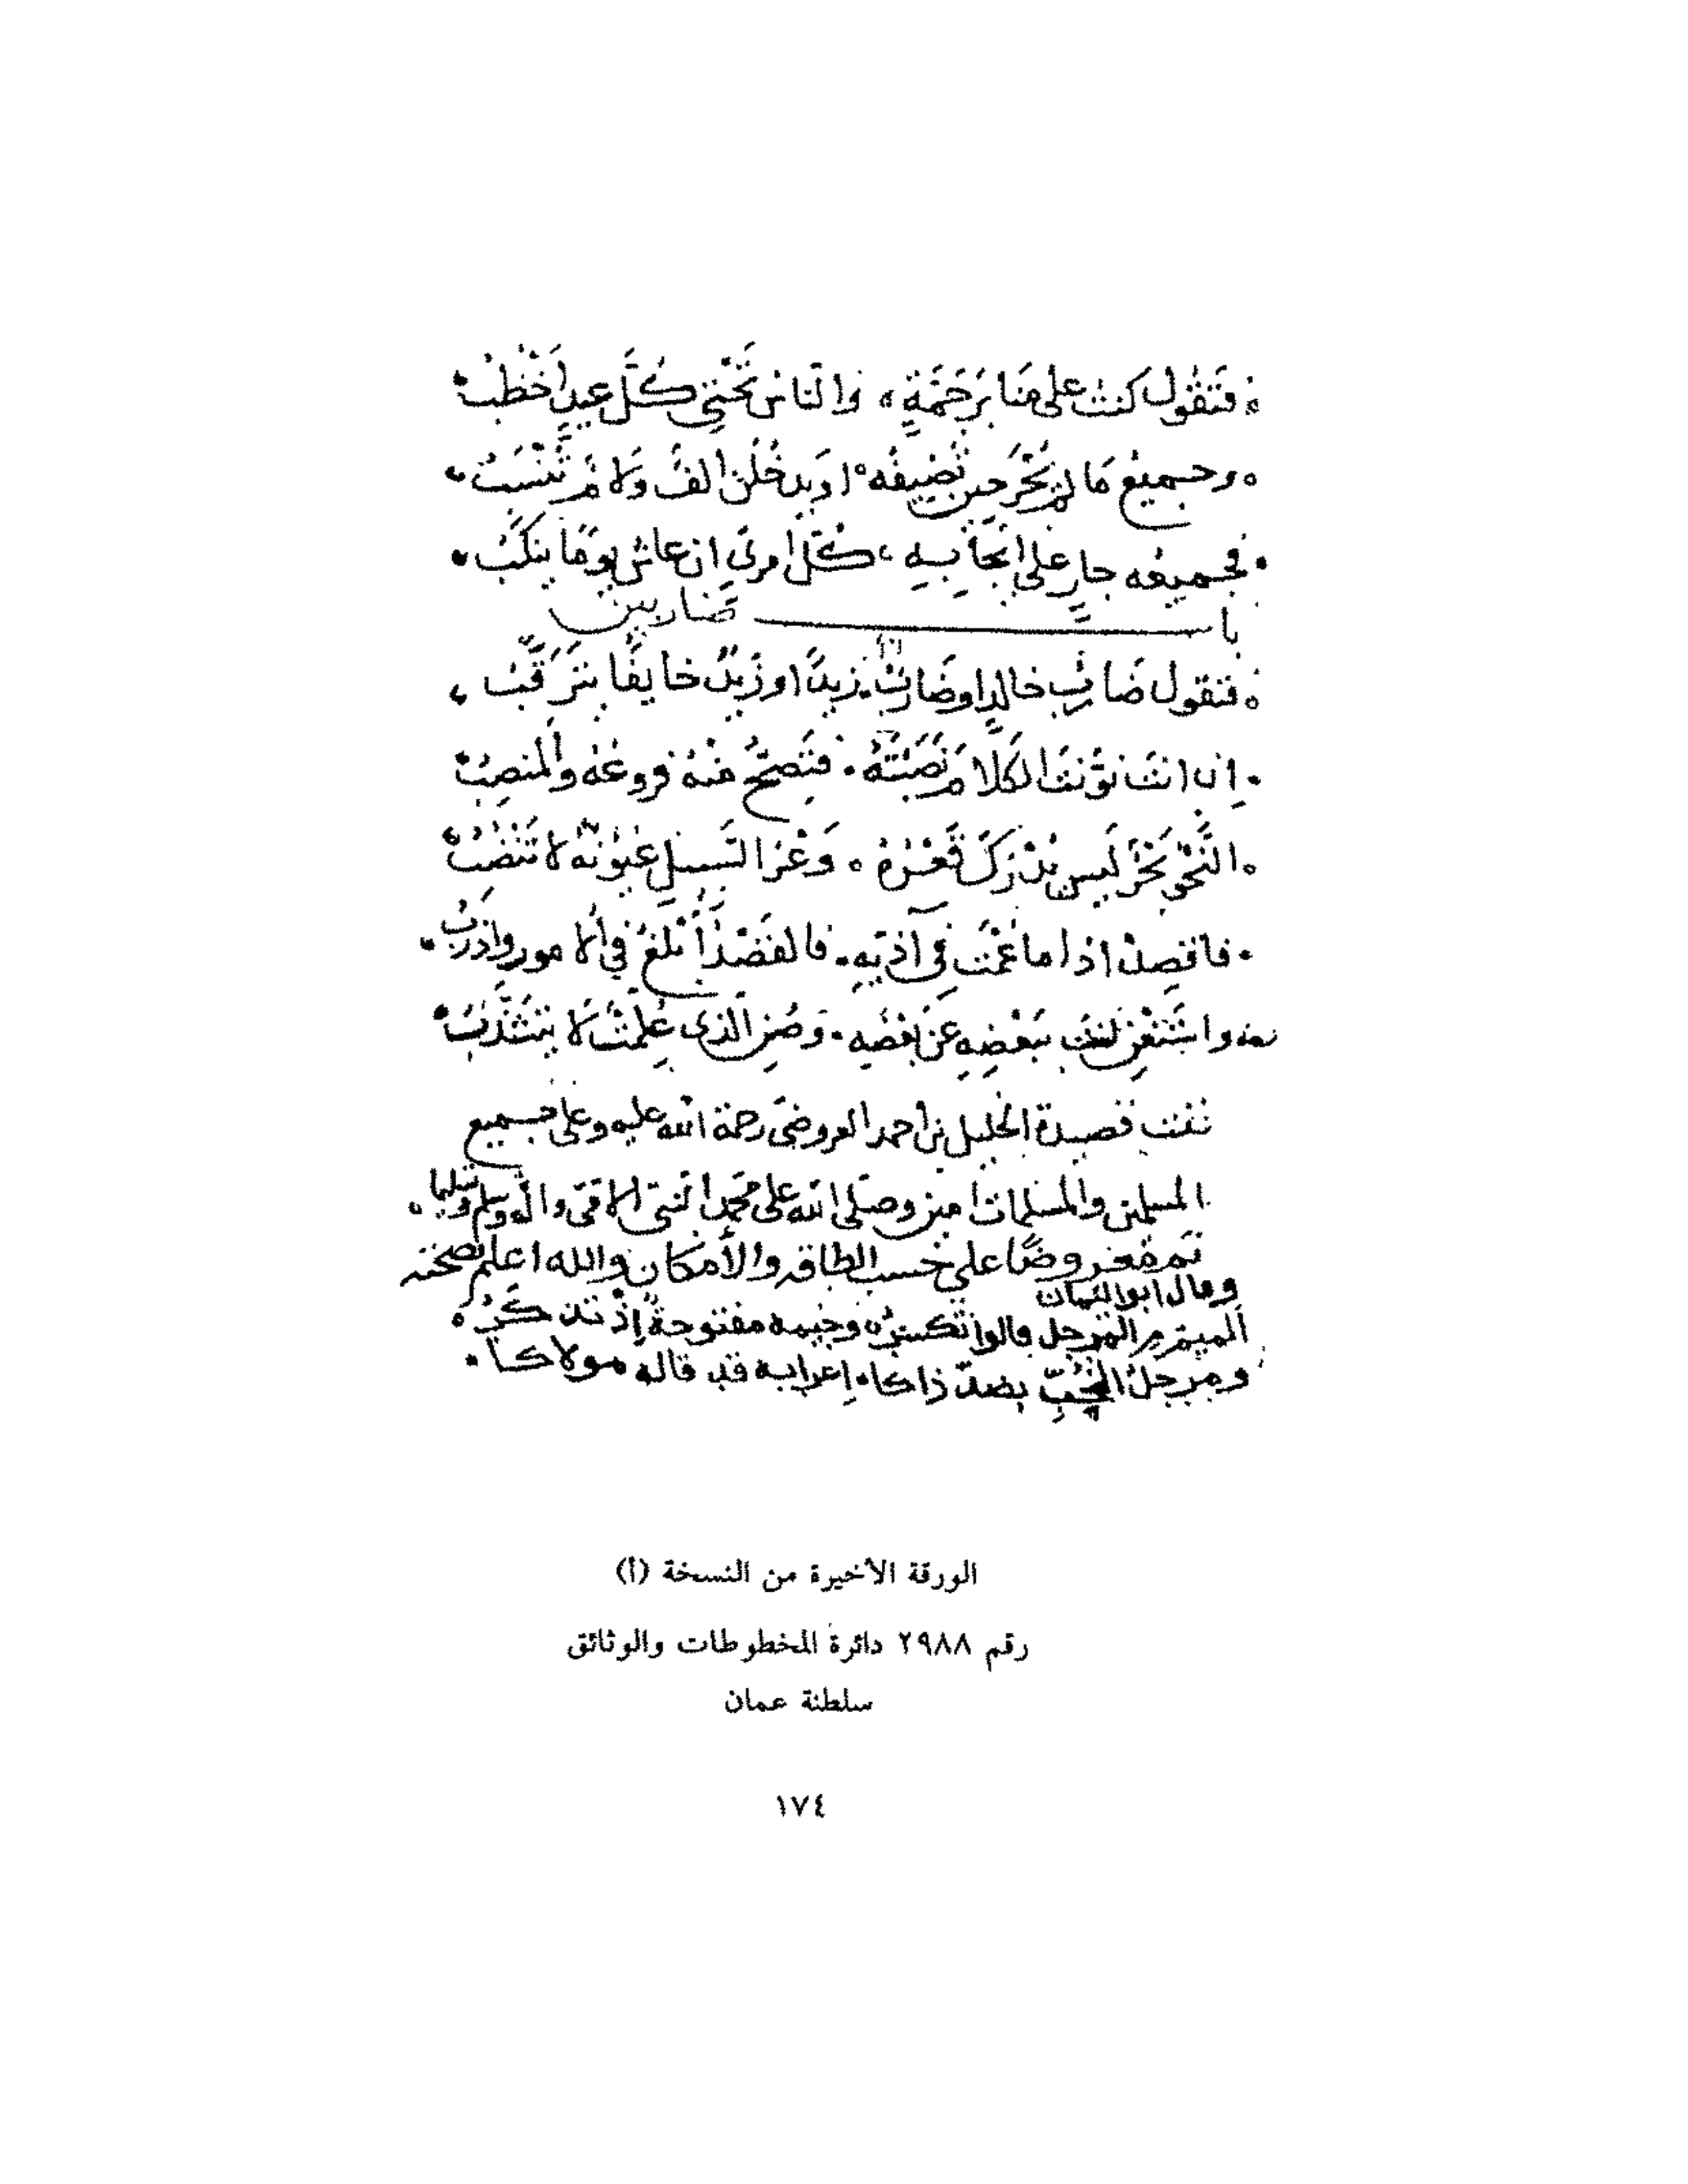 فَتَقُول كنت على منابر جَمَّةٍ ، والنّاس تَحْتِي كُلَّ عيدٍ أَخْطُبُ
وجميعُ مَا لم يُخْرجن تَضِيفُه اويدخلن الفٌ وَلامٌ تُنْسَبُ
فجميعُه جارٍ على اتجابه ، كُلّ امرئٍ ان عاش يومًا ينكَبُ
باب ضاربين
فتقول ضاربُ خالدٍ او ضاربٌ زيدًا وزَيدٌ خايفًا يترقَّبُ
إن انت نوّنتَ الكلام نصَبْتَهُ . فتصحّ منهُ فروعُهُ والمنصِبُ
النَّحْوُ بَحْرٌ لَيس يُدْرَكُ قَعْرُهُ . وَعْرُ السَّبيلِ عُيُونُهُ لا تَنْضُبُ
فاقصِدْ اذا ما عُمْتَ في آذيّه . فالقَصْدُ أَبْلَغُ في الامور واذرَبُ
واسْتَغْنِ انتَ بِبَعْضِهِ عَن بعضِه . وصُنِ الّذي عُلِّمْتَ لا يتشذَّبُ
تمت قصيدة الخليل بن احمد العروضي رحمة الله عليه وعلى جميع
المسلمين والمسلمات امين وصلى الله على محمد النبي الامّي واله وسلم تسليما
تم معروضًا على حسب الطاقه والأمكان والله اعلم بصحته
وقال ابو اليمان
الميم من المرجل قالوا تكسرُ وجيمه مفتوحةٌ إذ تذكرُ
ومرجل بضدّ ذاكا . إعرابه قد قاله مولاكا .
الورقة الأخيرة من النسخة (أ)
رقم ٢٩٨٨ دائرة المخطوطات والوثائق
سلطنة عمان
١٧٤